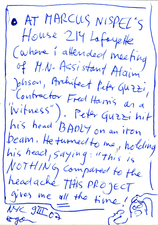 • AT MARCUS NISPEL'S
House 214 Lafayette
(where i attended meeting
of M.N. Assistant Alain
Johson, Architect Peter Guzzi,
Contractor Fred Harris as a
"witness"). Peter Guzzi hit
his head BADLY on an iron
beam. He turned to me, holding
his head, saying: "This is
NOTHING compared to the
headache THIS PROJECT
gives me all the time!
NYC